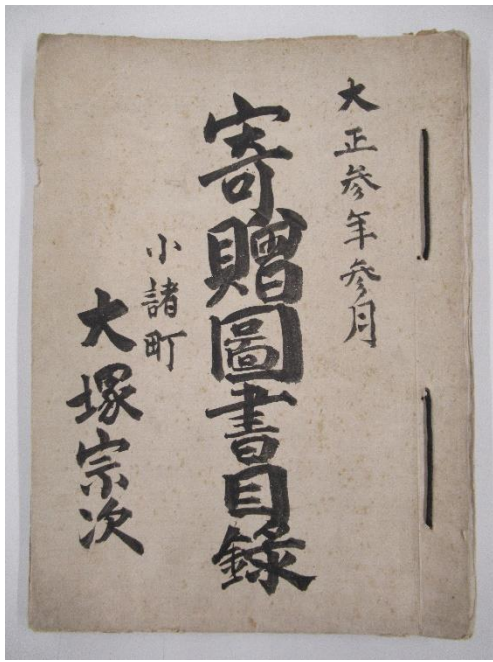 大正参年参月
寄贈圖書目錄
小諸町
大塚宗次